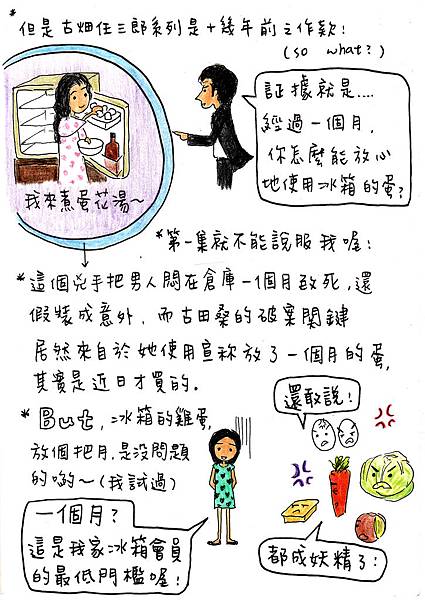 *但是古畑任三郎系列是十幾年前之作欸!
(so what?)
証據就是....
經過一個月,
你怎麼能放心
地使用冰箱的蛋?
我來煮蛋花湯~
*第一集就不能說服我喔:
*這個兇手把男人悶在倉庫一個月致死,還
假裝成意外,而古田桑的破案関鍵
居然來自於她使用宣称放了一個月的蛋,
其實是近日才買的。
*But,冰箱的雞蛋,
放個把月,是沒問題
的喲~(我試過)
還敢說!
一個月?
這是我家冰箱會員
的最低門檻喔!
都成妖精了: